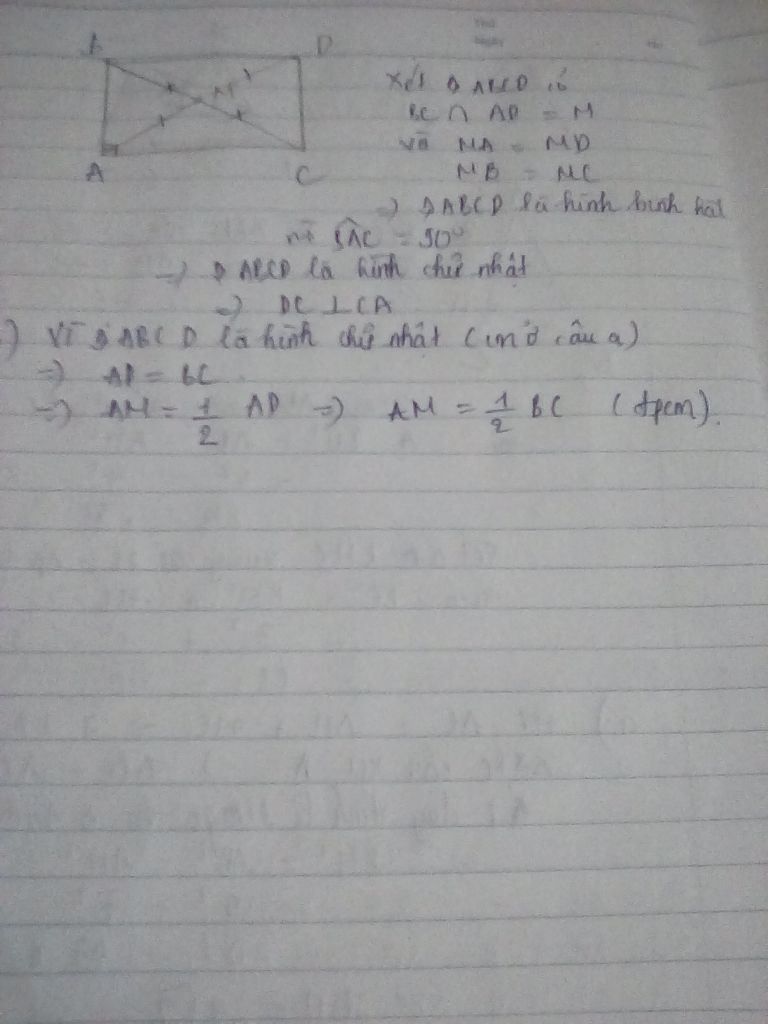 Thứ
Ngày
No
B
D
M
A
C
Xét ◊ ABCD có
BC ∩ AD = M
và MA = MD
MB = MC
=> ◊ ABCD là hình bình hành
mà BÂC = 90°
=> ◊ ABCD là hình chữ nhật
=> DC ⊥ CA
) Vì ◊ ABCD là hình chữ nhật (cm ở câu a)
=> AD = BC
=> AM = 1/2 AD => AM = 1/2 BC (đpcm).